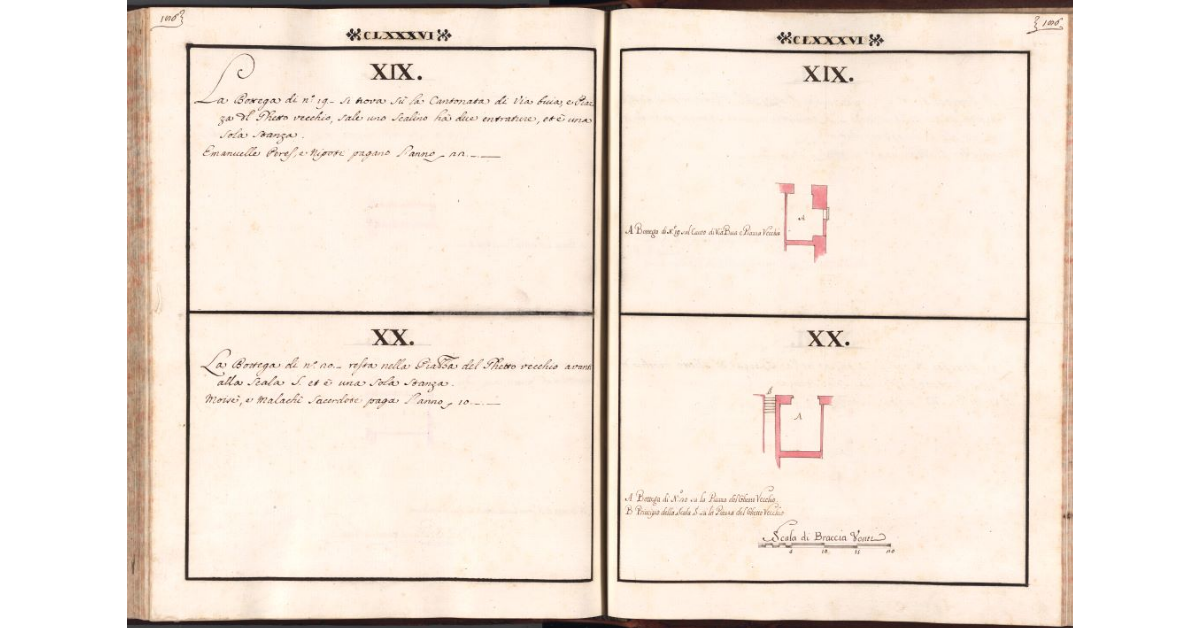 CLXXXVI
XIX.
La Bottega di n.° 19. si trova sù la Cantonata di Via buia, e Piaz
za del Ghetto vecchio, sale uno Scalino hà due entrature, et è una
sola stanza.
Emanuelle Peres, e Nipoti pagano l'anno
XX.
La Bottega di n.° 20. resta nella Piazza del Ghetto vecchio avanti
alla Scala S. et è una sola stanza.
Moisè, e Malachi Sacerdote paga l'anno 10.
CLXXXVI
XIX.
A
A Bottega di N.° 19 sul Canto di Via Buia e Piazza Vecchia
XX.
B
A
A Bottega di N.° 20 su la Piazza del Ghetto Vecchio
B Principio della Scala S. su la Piazza del Ghetto Vecchio
Scala di Braccia Venti
10 20